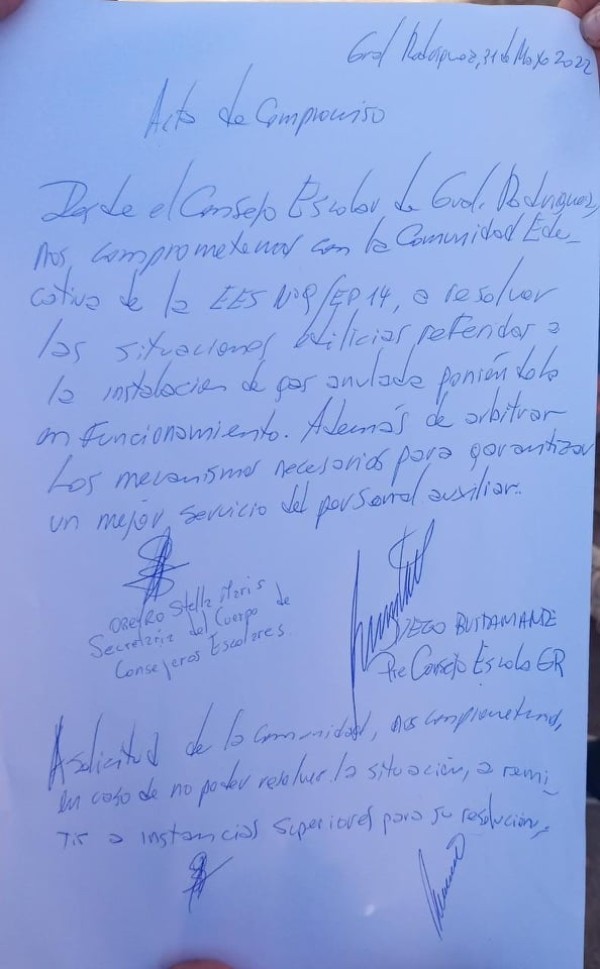 Gral Rodriguez, 31 de Mayo 2022
Acta de Compromiso
Desde el Consejo Escolar de Gral. Rodriguez,
nos comprometemos con la Comunidad Edu-
cativa de la EES Nº9/EP14, a resolver
las situaciones edilicias referidas a
la instalacion de gas anulada poniéndola
en Funcionamiento. Además de arbitrar
Los mecanismos necesarios para garantizar
un mejor servicio del personal auxiliar..
Stella Maris
Secretaria del Cuerpo de
Consejeros Escolares
DIEGO BUSTAMANTE
Pre Consejo Escolar GR
A solicitud de la comunidad, nos comprometemos,
en caso de no poder resolver la situación, a remi_
Tir a instancias superiores para su resolución,